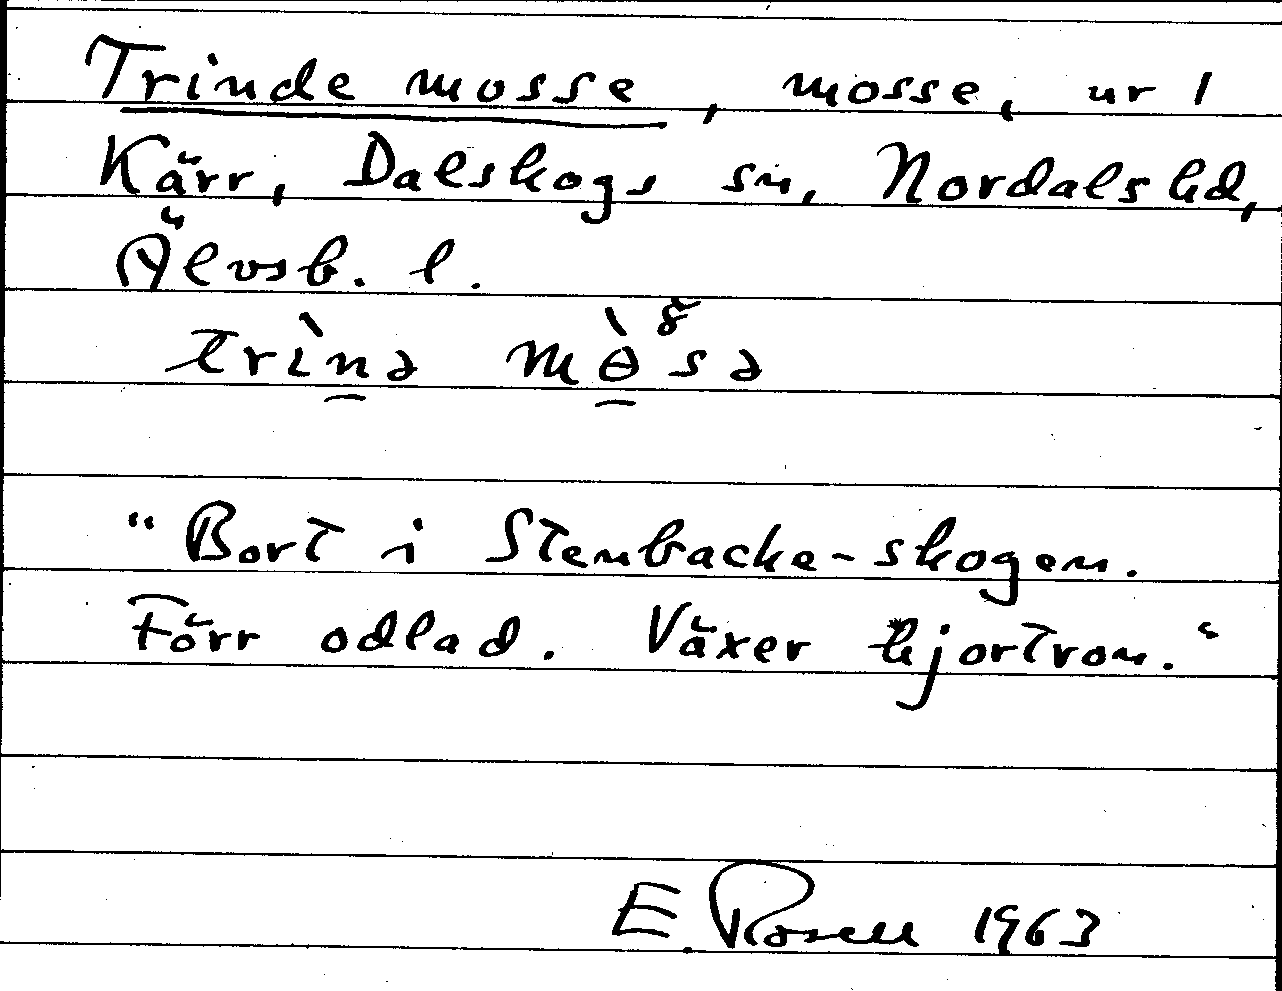 Trinde mosse, mosse, ur 1
Kärr, Dalskogs sn, Nordals hd,
Älvsb. l.
trìnə mɵ̀sə
"Bort i Stenbacka-skogen.
Förr odlad. Växer hjortron."
E. Rosell 1963